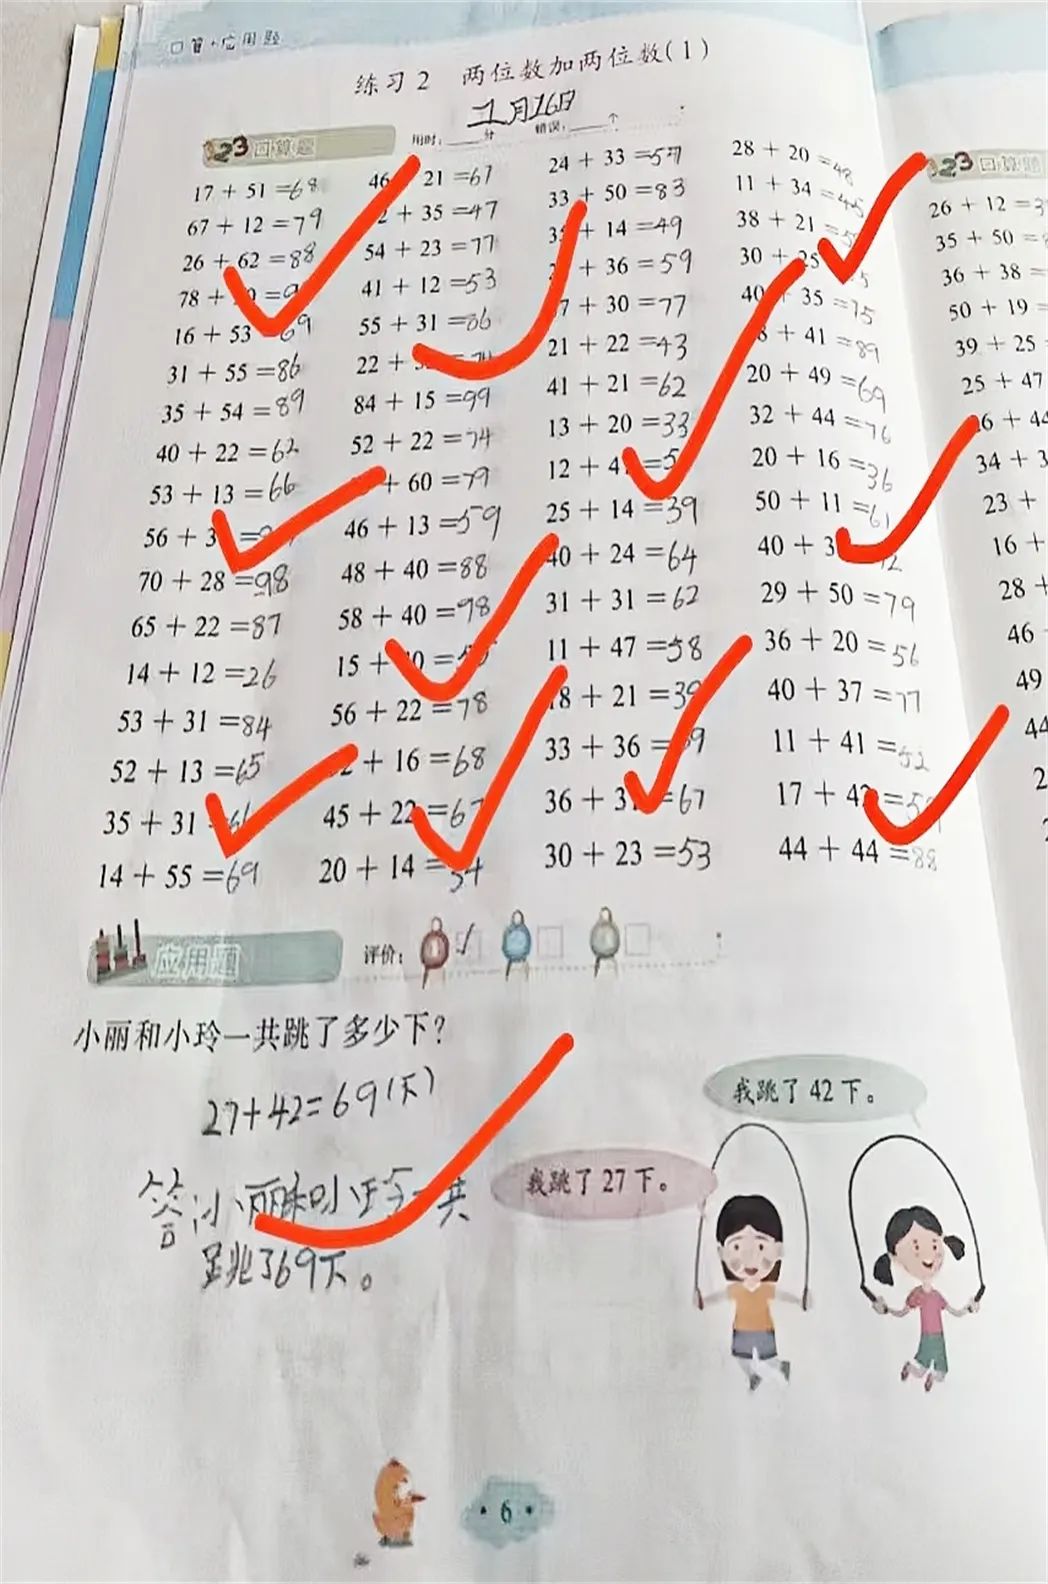 口算+应用题
练习2 两位数加两位数(1)
1月16日
用时:____分 错误:____个
123 口算题
17 + 51 =68
67 + 12 =79
26 + 62 =88
78 +
16 + 53 69
31 + 55 =86
35 + 54 =89
40 + 22 =62
53 + 13 =66
56 + 3
70 + 28 =98
65 + 22 =87
14 + 12 =26
53 + 31 =84
52 + 13 =65
35 + 31
14 + 55 =69
46 21 =67
2 + 35 =47
54 + 23 =77
41 + 12 =53
55 + 31 =86
22 +
84 + 15 =99
52 + 22 =74
+ 60 =79
46 + 13 =59
48 + 40 =88
58 + 40 =98
15 +
56 + 22 =78
+ 16 =68
45 + 22 =67
20 + 14 =34
24 + 33 =57
33 + 50 =83
+ 14 =49
+ 36 =59
7 + 30 =77
21 + 22 =43
41 + 21 =62
13 + 20 =33
12 + 4 =5
25 + 14 =39
40 + 24 =64
31 + 31 =62
11 + 47 =58
18 + 21 =39
33 + 36 =69
36 + 31 =67
30 + 23 =53
28 + 20 =48
11 + 34 =45
38 + 21 =5
30 + 25
40 + 35 =75
8 + 41 =89
20 + 49 =69
32 + 44 =76
20 + 16 =36
50 + 11 =61
40 + 3
29 + 50 =79
36 + 20 =56
40 + 37 =77
11 + 41 =52
17 + 42 =59
44 + 44 =88
123 口算题
26 + 12 =3
35 + 50 =
36 + 38 =
50 + 19 =
39 + 25
25 + 47
6 + 44
34 + 3
23 +
16 +
28 +
46
49
44
应用题
评价:
小丽和小玲一共跳了多少下?
27+42=69(下)
答:小丽和小玲一共
跳了69下。
我跳了 42 下。
我跳了 27 下。
·6·